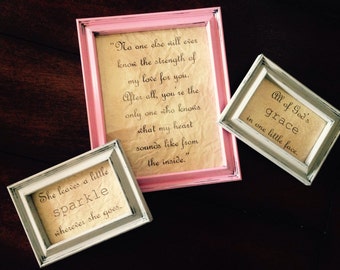 "No one else will ever
know the strength of
my love for you.
After all, you're the
only one who knows
what my heart
sounds like from
the inside."
All of God's
grace
in one little face.
She leaves a little
sparkle
wherever she goes.